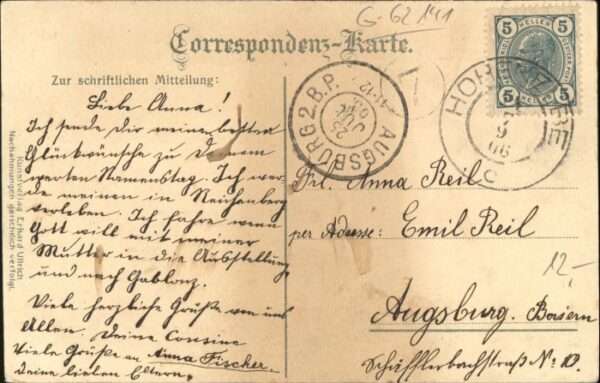 G-62141
Correspondenz-Karte.
Zur schriftlichen Mitteilung:
Liebe Anna!
Ich sende dir meine besten
Glückwünsche zu deinem
werten Namenstag. Ich wer-
de meinen in Reichenberg
verleben. Ich fahre wenn
Gott will mit meiner
Mutter in die Ausstellung
und nach Gablonz.
Viele herzliche Grüße von uns
Allen. Deine Cousine
Viele Grüße an Anna Fischer.
deine lieben Eltern.
Kunstverlag Erhard Ullrich
Nachahmungen gerichtlich verfolgt.
AUGSBURG 2.B.P.
25
JUL
11-12
5 HELLER 5
5 HELLER 5
HOHEN
06
C
Frl. Anna Reil
per Adresse: Emil Reil
12,-
Augsburg. Baiern
Schäfflerbachstraß No 10.